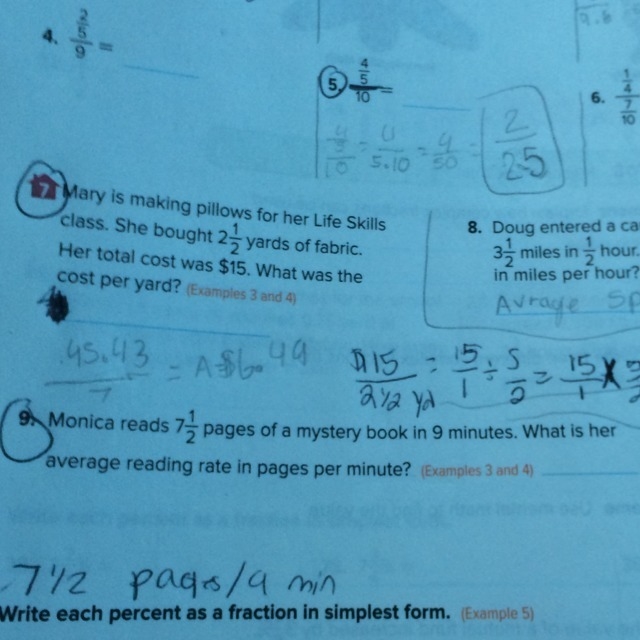 4. 2/5/9 =
5. 4/5/10 =
6. 1/4/7/10
4/5/10 = 4/5·10 = 4/50 = 2/25
7 Mary is making pillows for her Life Skills
class. She bought 2 1/2 yards of fabric.
Her total cost was $15. What was the
cost per yard? (Examples 3 and 4)
8. Doug entered a ca
3 1/2 miles in 1/2 hour.
in miles per hour?
Avrage Sp
$15/2 1/2 yd = 15/1 ÷ 5/2 = 15/1 ×
9. Monica reads 7 1/2 pages of a mystery book in 9 minutes. What is her
average reading rate in pages per minute? (Examples 3 and 4)
7 1/2 pages/9 min
Write each percent as a fraction in simplest form. (Example 5)